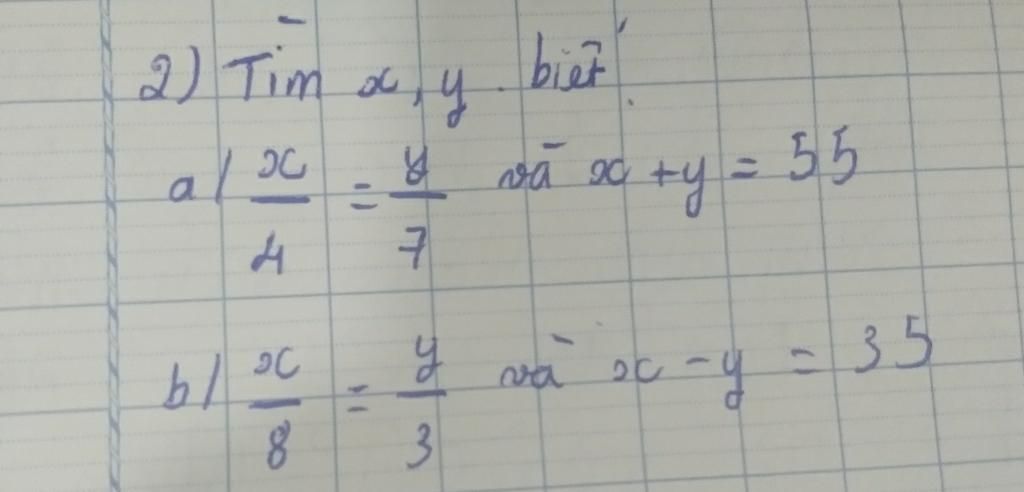 2) Tìm x, y. biết.
a/ x/4 = y/7 và x + y = 55
b/ x/8 = y/3 và x - y = 35